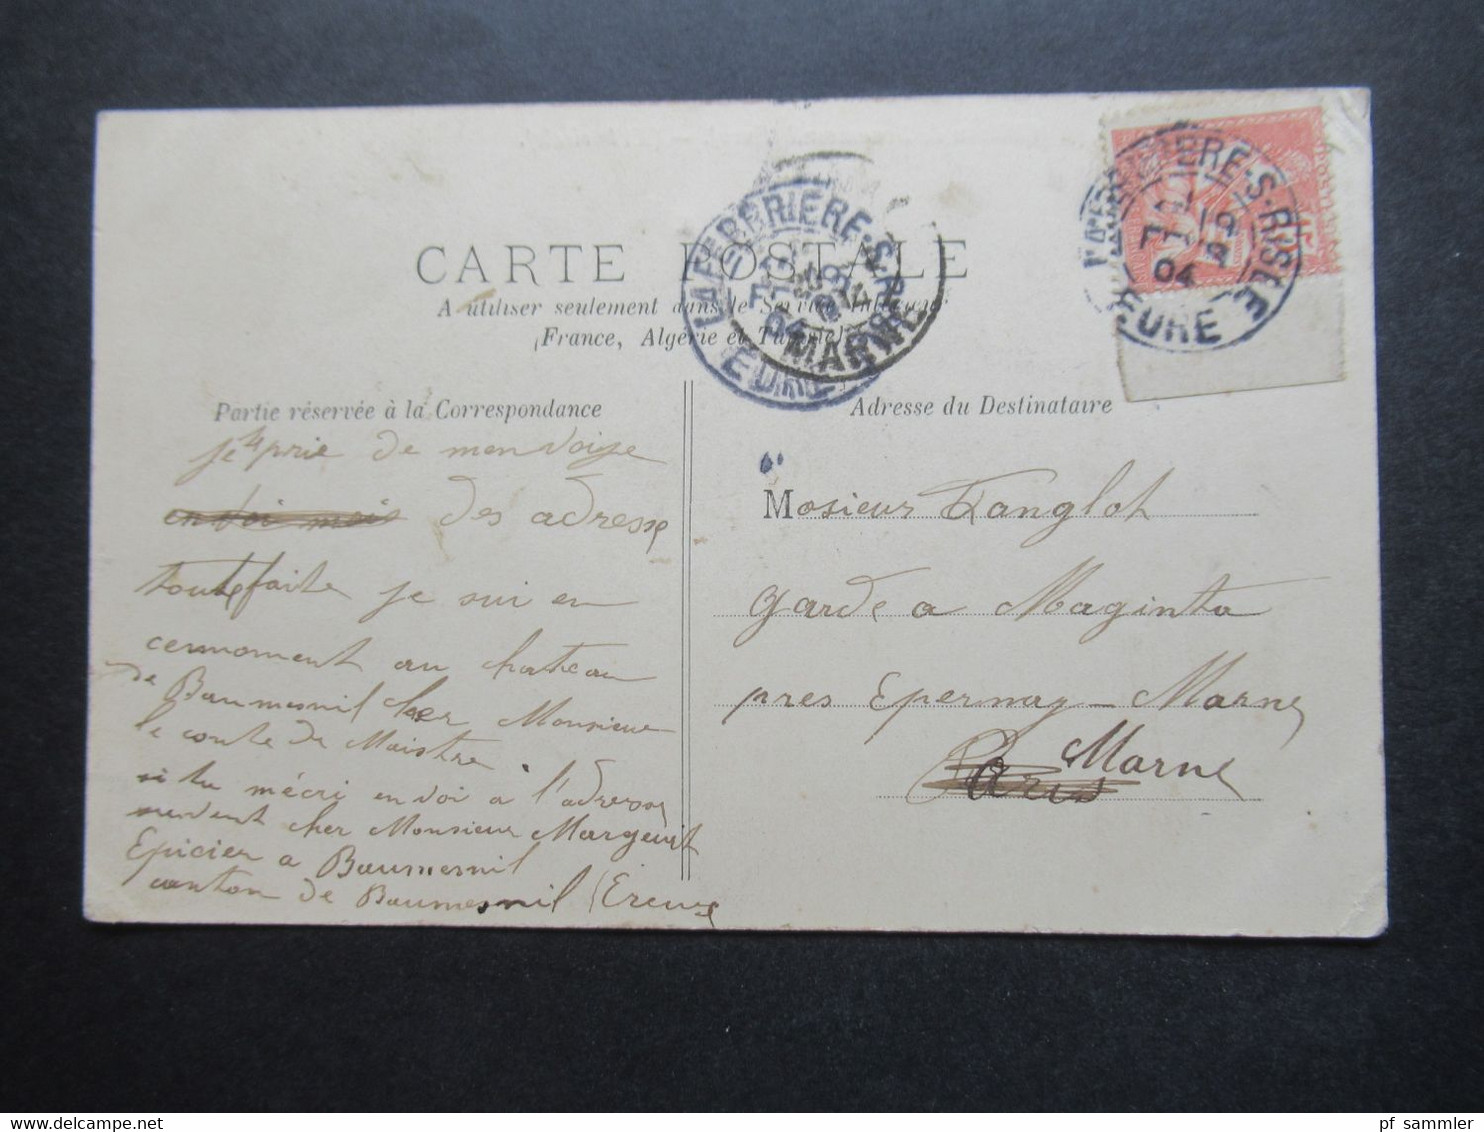 CARTE POSTALE
A utiliser seulement dans le Service Intérieur
(France, Algérie et Tunisie)
Partie réservée à la Correspondance
Adresse du Destinataire
LA FERRIÈRE-S-RISLE
EURE
04
MARNE
FERRIERE-S-RISLE
04
EURE
je prie de men voiye
des adresse
toutefaite je sui en
cemoment au chateau
de Baumesnil cher Monsieur
le conte de Maistre
si tu mécri envoi a l'adresse
suivent cher Monsieur Margerit
Epicier a Baumesnil
canton de Baumesnil (Ereure
Mosieur Langlot
garde a Maginta
pres Epernay - Marne
Paris Marne
www.delcampe.net
pf sammler